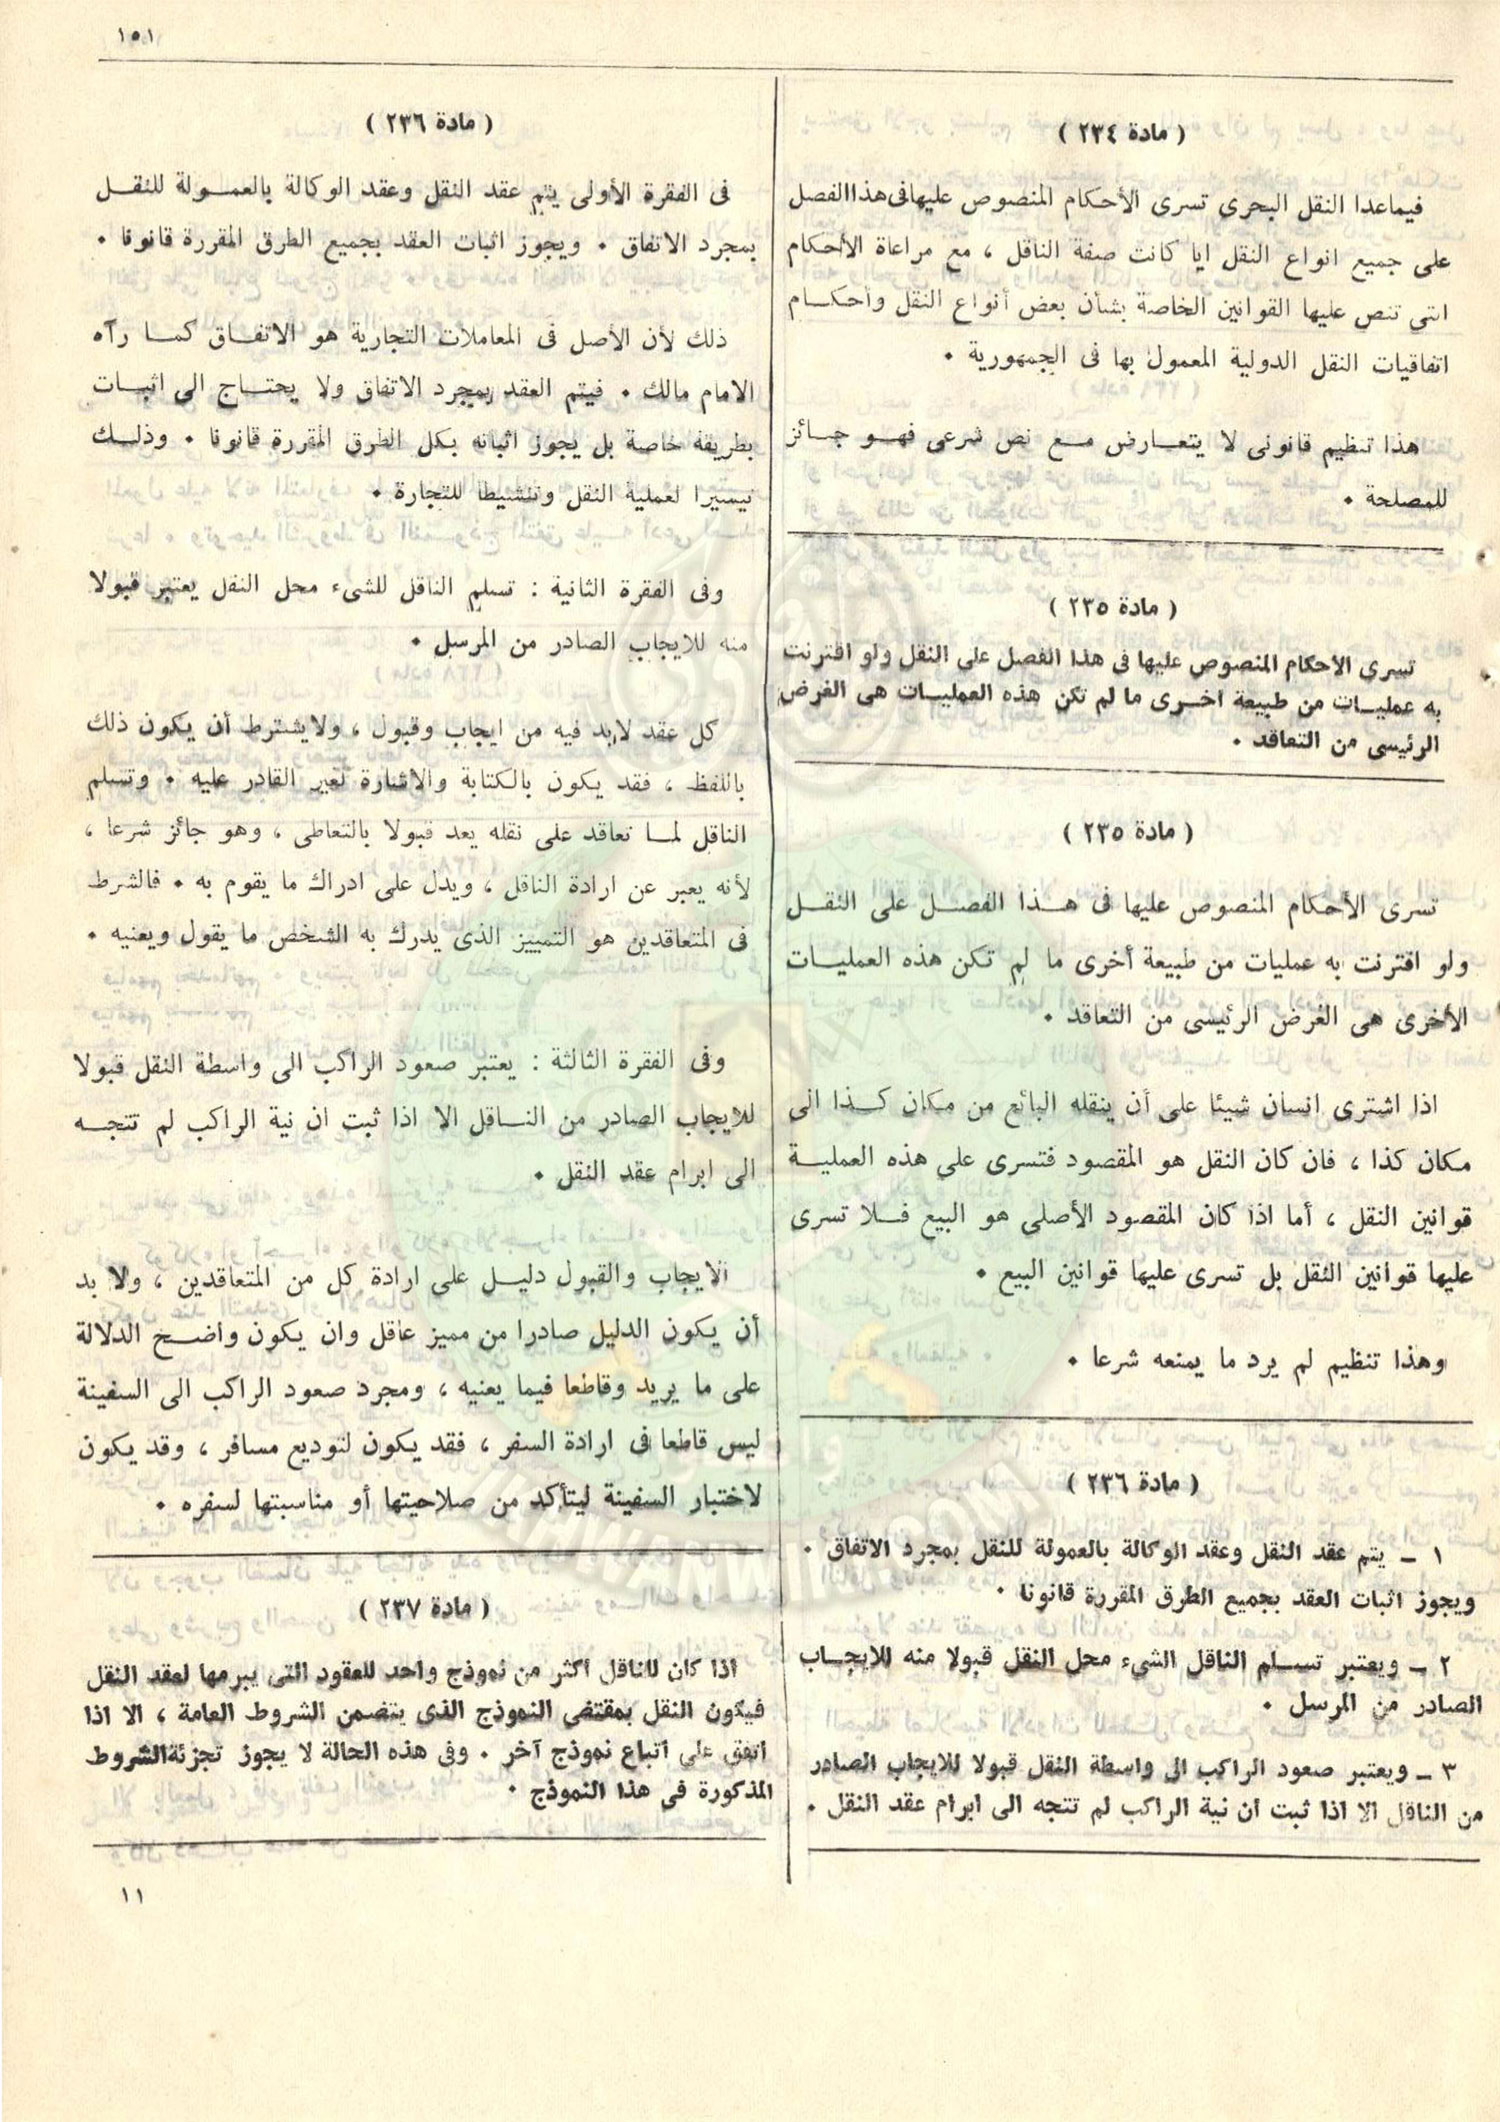 ١٥١
( مادة ٢٣٤ )
فيماعدا النقل البحرى تسرى الأحكام المنصوص عليهافى هذا الفصل
على جميع انواع النقل ايا كانت صفة الناقل ، مع مراعاة الأحكام
التى تنص عليها القوانين الخاصة بشأن بعض أنواع النقل وأحكام
اتفاقيات النقل الدولية المعمول بها فى الجمهورية .
هذا تنظيم قانونى لا يتعارض مع نص شرعى فهو جائز
للمصلحة .
( مادة ٢٣٥ )
تسرى الاحكام المنصوص عليها فى هذا الفصل على النقل ولو اقترنت
به عمليات من طبيعة اخرى ما لم تكن هذه العمليات هى الغرض
الرئيسى من التعاقد .
( مادة ٢٣٥ )
تسرى الأحكام المنصوص عليها فى هذا الفصل على النقل
ولو اقترنت به عمليات من طبيعة أخرى ما لم تكن هذه العمليات
الأخرى هى الغرض الرئيسى من التعاقد .
اذا اشترى انسان شيئا على أن ينقله البائع من مكان كذا الى
مكان كذا ، فان كان النقل هو المقصود فتسرى على هذه العملية
قوانين النقل ، أما اذا كان المقصود الأصلى هو البيع فلا تسرى
عليها قوانين النقل بل تسرى عليها قوانين البيع .
وهذا تنظيم لم يرد ما يمنعه شرعا .
( مادة ٢٣٦ )
١ - يتم عقد النقل وعقد الوكالة بالعمولة للنقل بمجرد الاتفاق .
ويجوز اثبات العقد بجميع الطرق المقررة قانونا .
٢ - ويعتبر تسلم الناقل الشىء محل النقل قبولا منه للايجاب
الصادر من المرسل .
٣ - ويعتبر صعود الراكب الى واسطة النقل قبولا للايجاب الصادر
من الناقل الا اذا ثبت ان نية الراكب لم تتجه الى ابرام عقد النقل .
( مادة ٢٣٦ )
فى الفقرة الأولى يتم عقد النقل وعقد الوكالة بالعمولة للنقل
بمجرد الاتفاق . ويجوز اثبات العقد بجميع الطرق المقررة قانونا .
ذلك لأن الأصل فى المعاملات التجارية هو الاتفاق كما رآه
الامام مالك . فيتم العقد بمجرد الاتفاق ولا يحتاج الى اثبات
بطريقة خاصة بل يجوز اثباته بكل الطرق المقررة قانونا . وذلك
تيسيرا لعملية النقل وتنشيطا للتجارة .
وفى الفقرة الثانية : تسلم الناقل للشىء محل النقل يعتبر قبولا
منه للايجاب الصادر من المرسل .
كل عقد لابد فيه من ايجاب وقبول ، ولايشترط أن يكون ذلك
باللفظ ، فقد يكون بالكتابة والاشارة لغير القادر عليه . وتسلم
الناقل لما تعاقد على نقله يعد قبولا بالتعاطى ، وهو جائز شرعا ،
لأنه يعبر عن ارادة الناقل ، ويدل على ادراك ما يقوم به . فالشرط
فى المتعاقدين هو التمييز الذى يدرك به الشخص ما يقول ويعنيه .
وفى الفقرة الثالثة : يعتبر صعود الراكب الى واسطة النقل قبولا
للايجاب الصادر من الناقل الا اذا ثبت ان نية الراكب لم تتجه
الى ابرام عقد النقل .
الايجاب والقبول دليل على ارادة كل من المتعاقدين ، ولا بد
أن يكون الدليل صادرا من مميز عاقل وان يكون واضح الدلالة
على ما يريد وقاطعا فيما يعنيه ، ومجرد صعود الراكب الى السفينة
ليس قاطعا فى ارادة السفر ، فقد يكون لتوديع مسافر ، وقد يكون
لاختبار السفينة ليتأكد من صلاحيتها أو مناسبتها لسفره .
( مادة ٢٣٧ )
اذا كان للناقل أكثر من نموذج واحد للعقود التى يبرمها لعقد النقل
فيكون النقل بمقتضى النموذج الذى يتضمن الشروط العامة ، الا اذا
اتفق على اتباع نموذج آخر . وفى هذه الحالة لا يجوز تجزئةالشروط
المذكورة فى هذا النموذج .
١١
IKHWANWIKI.COM